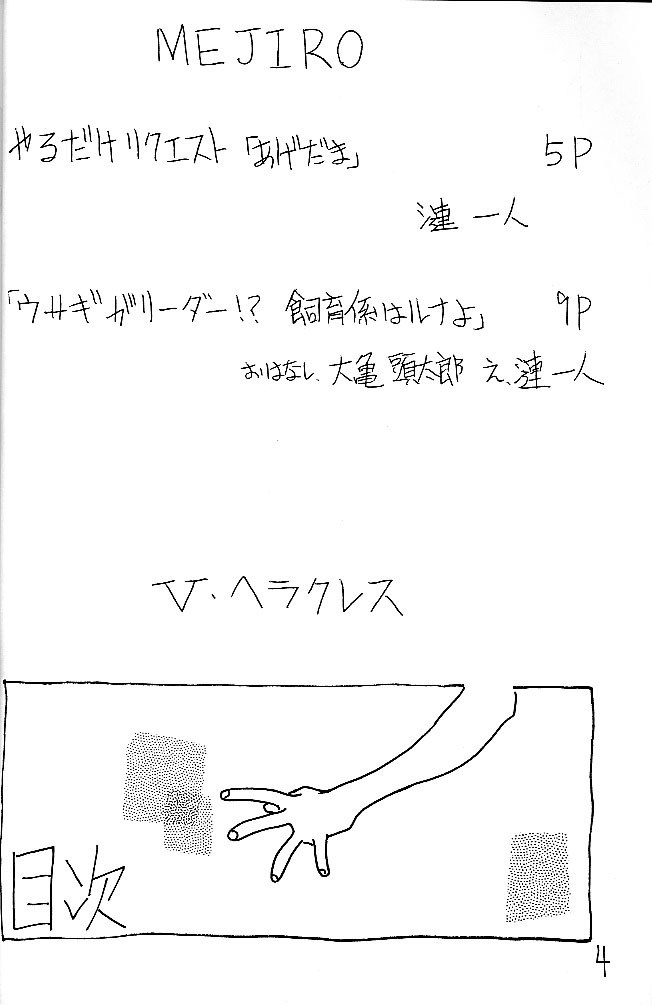 MEJIRO
やるだけリクエスト「あげだま」 5P
漣 一人
「ウサギがリーダー!? 飼育係はルナよ」 9P
おはなし、大亀 頭太郎 え、漣一人
V・ヘラクレス
目次
4